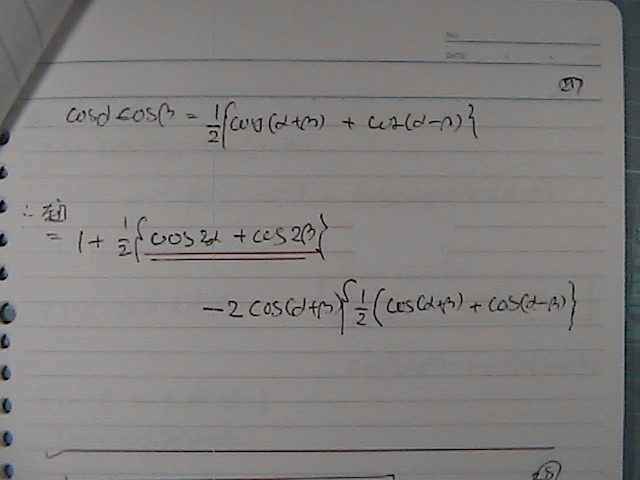 No.
DATE
cosα cosβ = 1/2{cos(α+β) + cos(α-β)}
∴
= 1 + 1/2{cos2α + cos2β}
-2 cos(α+β){1/2(cos(α+β) + cos(α-β)}